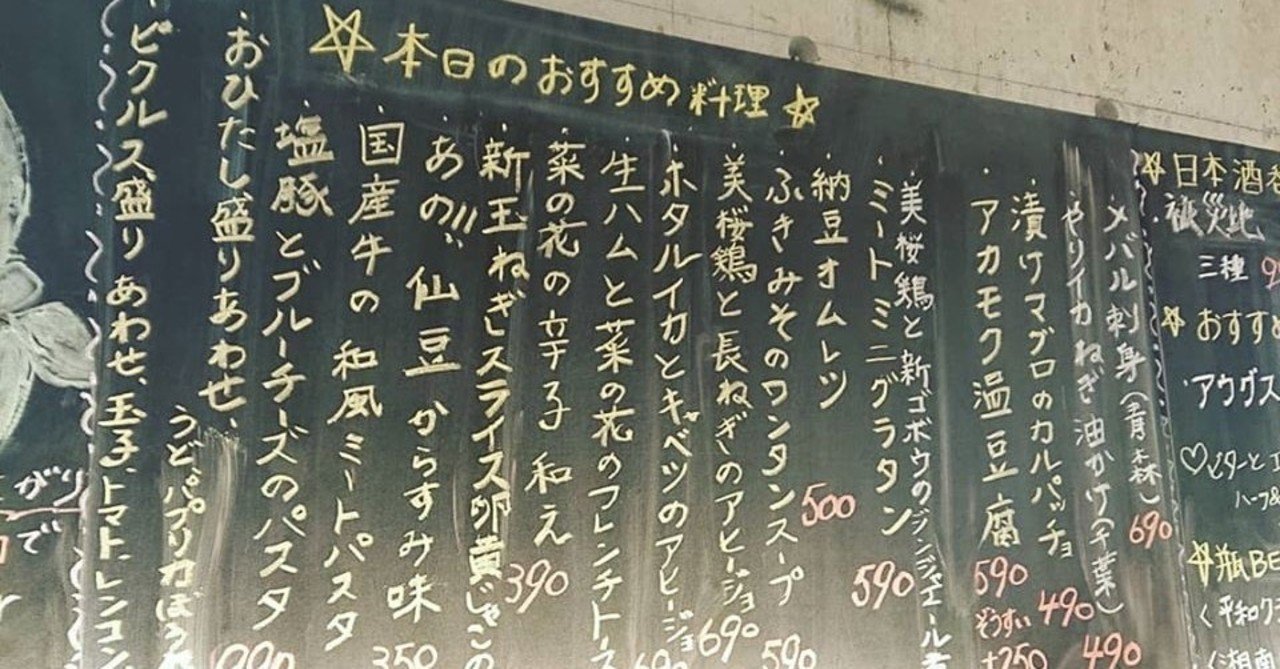 ☆本日のおすすめ料理☆
・メバル刺身(青森) 690
・やりイカねぎ油かけ(千葉) 490
・漬けマグロのカルパッチョ 490
・アカモク温豆腐 590
ぞうすい +250
・美桜鶏と新ゴボウのジンジャエール
・ミートミニグラタン 590
・納豆オムレツ 500
・ふきみそのワンタンスープ 590
・美桜鶏と長ねぎのアヒージョ 690
・ホタルイカとキャベツのアヒージョ 690
・生ハムと菜の花のフレンチトース
・菜の花の辛子和え 390
・新玉ねぎスライス卵黄じゃこの
・あの"仙豆"からすみ味 350
・国産牛の和風ミートパスタ
・塩豚とブルーチーズのパスタ
・おひたし盛りあわせ、
うど、パプリカ
・ピクルス盛りあわせ、玉子、トマト、レンコン
がり
で
☆日本酒
被災地
三種
☆おすすめ
・アウグス
♡ビターと
ハーフ&
☆瓶BE
〈平和ク
〈湘南